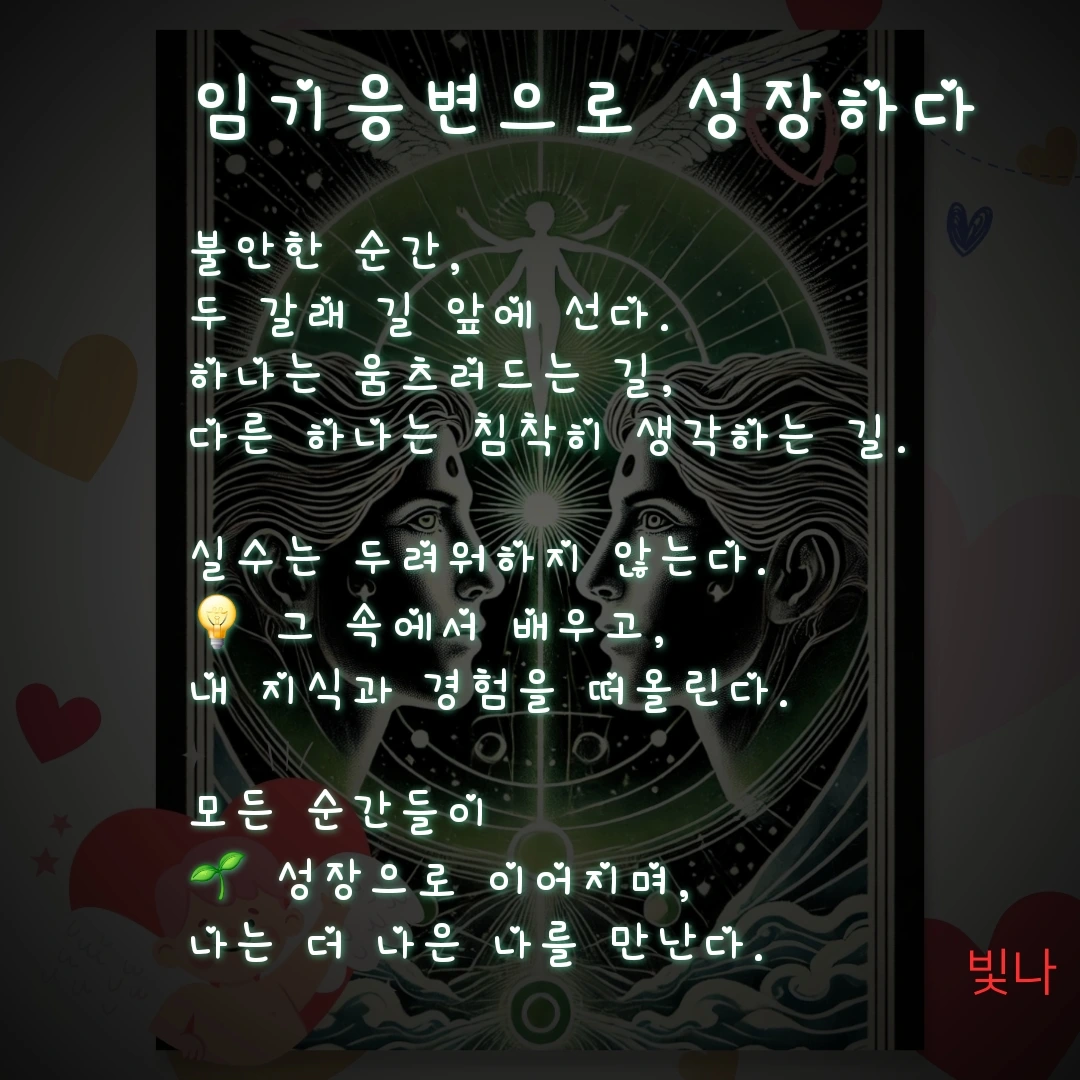 임기응변으로 성장하다
불안한 순간,
두 갈래 길 앞에 선다.
하나는 움츠려드는 길,
다른 하나는 침착히 생각하는 길.
실수는 두려워하지 않는다.
💡 그 속에서 배우고,
내 지식과 경험을 떠올린다.
모든 순간들이
🌱 성장으로 이어지며,
나는 더 나은 나를 만난다.
빛나